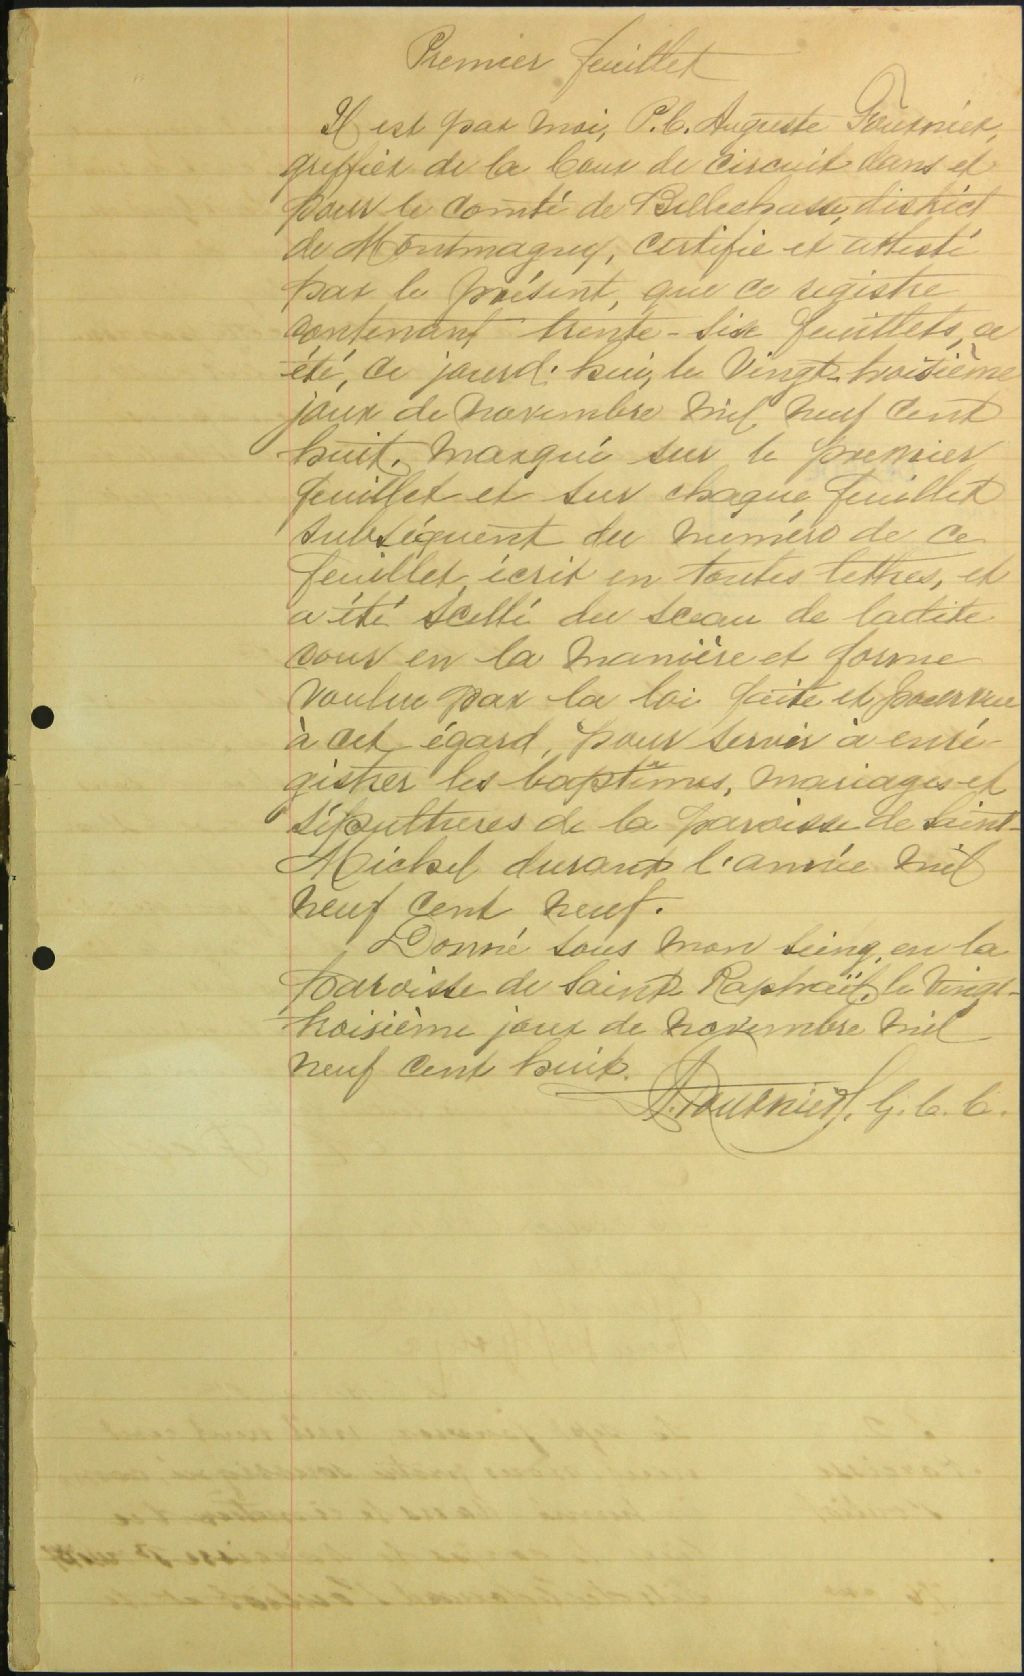 Premier feuillet
Il est par moi, P.C. Auguste Fournier,
greffier de la Cour de circuit dans et
pour le comté de Bellechasse, district
de Montmagny, certifié et attesté
par le présent, que ce registre
contenant trente-six feuillets, a
été, ce jourd'hui, le vingt-troisième
jour de novembre mil neuf cent
huit, marqué sur le premier
feuillet et sur chaque feuillet
subséquent du numéro de ce
feuillet, écrit en toutes lettres, et
a été scellé du sceau de ladite
cour en la manière et forme
voulue par la loi faite et pourvue
à cet égard, pour servir à enré-
gistrer les baptêmes, mariages et
sépultures de la paroisse de Saint-
Michel durant l'année mil
neuf cent neuf.
Donné sous mon seing, en la
paroisse de Saint-Raphaël, le vingt-
troisième jour de novembre mil
neuf cent huit.
A. Fournier, G.C.C.